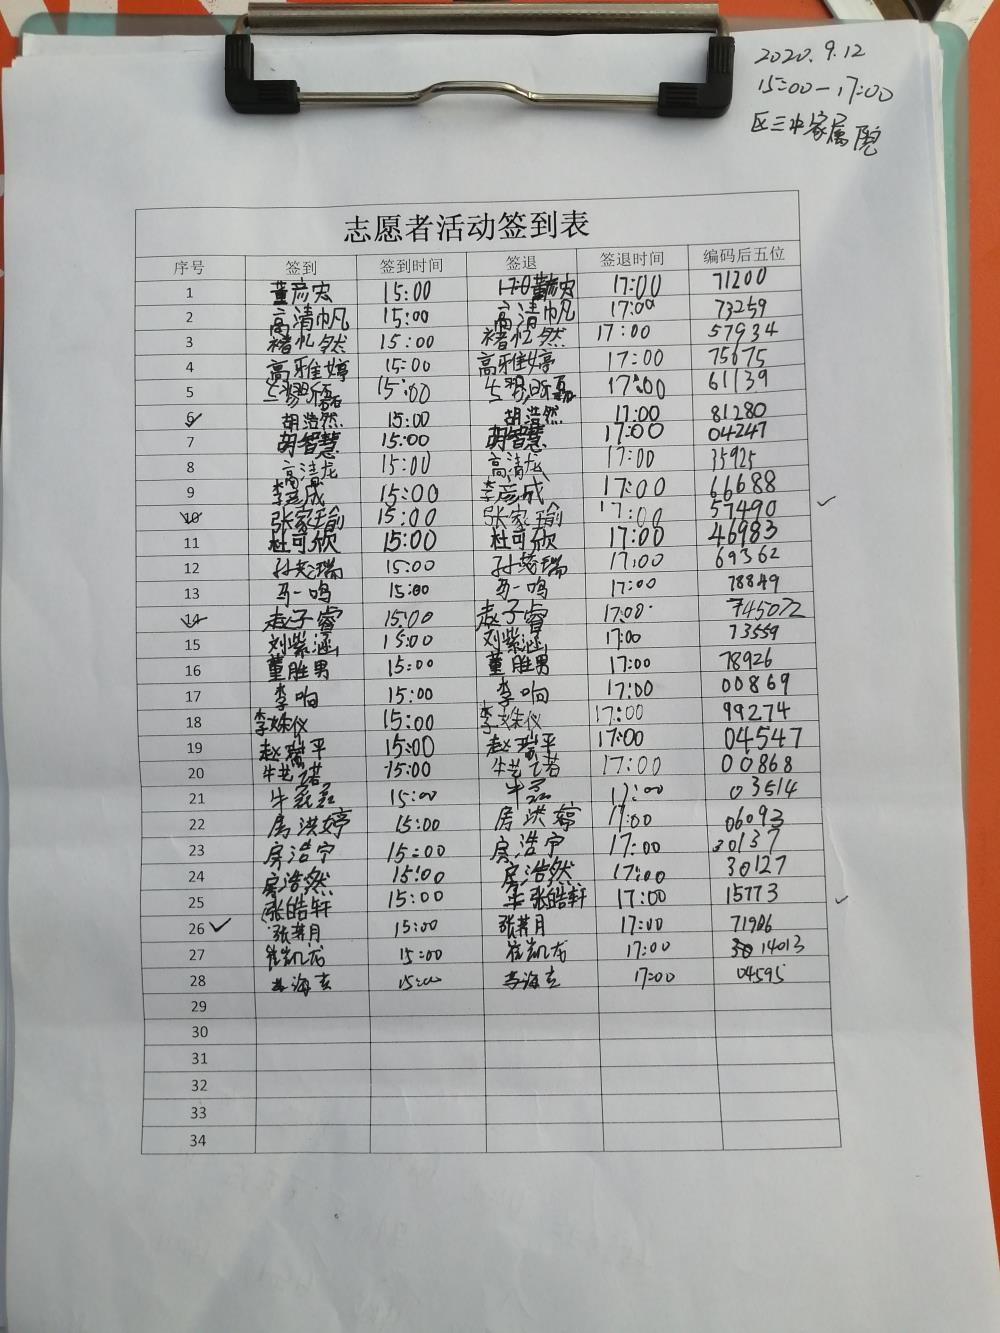 2020.9.12
15:00-17:00
区三中家属院
志愿者活动签到表
序号 签到 签到时间 签退 签退时间 编码后五位
1 董彦宏 15:00 董彦宏 17:00 71200
2 高清帆 15:00 高清帆 17:00 73259
3 褚忆然 15:00 褚忆然 17:00 57934
4 高雅婷 15:00 高雅婷 17:00 75675
5 15:00 17:00 61139
6 胡浩然 15:00 胡浩然 17:00 81280
7 胡智慧 15:00 胡智慧 17:00 04247
8 高清龙 15:00 高清龙 17:00 35925
9 李彦成 15:00 李彦成 17:00 66688
10 张家瑜 15:00 张家瑜 17:00 57490
11 杜可欣 15:00 杜可欣 17:00 46983
12 孙芸瑞 15:00 孙芸瑞 17:00 69362
13 马一鸣 15:00 马一鸣 17:00 78849
14 赵子睿 15:00 赵子睿 17:00 45022
15 刘紫涵 15:00 刘紫涵 17:00 73559
16 董胜男 15:00 董胜男 17:00 78926
17 李响 15:00 李响 17:00 00869
18 李姝仪 15:00 李姝仪 17:00 99274
19 赵瑞平 15:00 赵瑞平 17:00 04547
20 牛艺诺 15:00 牛艺诺 17:00 00868
21 牛 15:00 牛 17:00 03514
22 房洪婷 15:00 房洪婷 17:00 06093
23 房浩宁 15:00 房浩宁 17:00 30137
24 房浩然 15:00 房浩然 17:00 30127
25 张皓轩 15:00 张皓轩 17:00 15773
26 张菁月 15:00 张菁月 17:00 71986
27 崔凯龙 15:00 崔凯龙 17:00 14013
28 李海玄 15:00 李海玄 17:00 04595
29
30
31
32
33
34